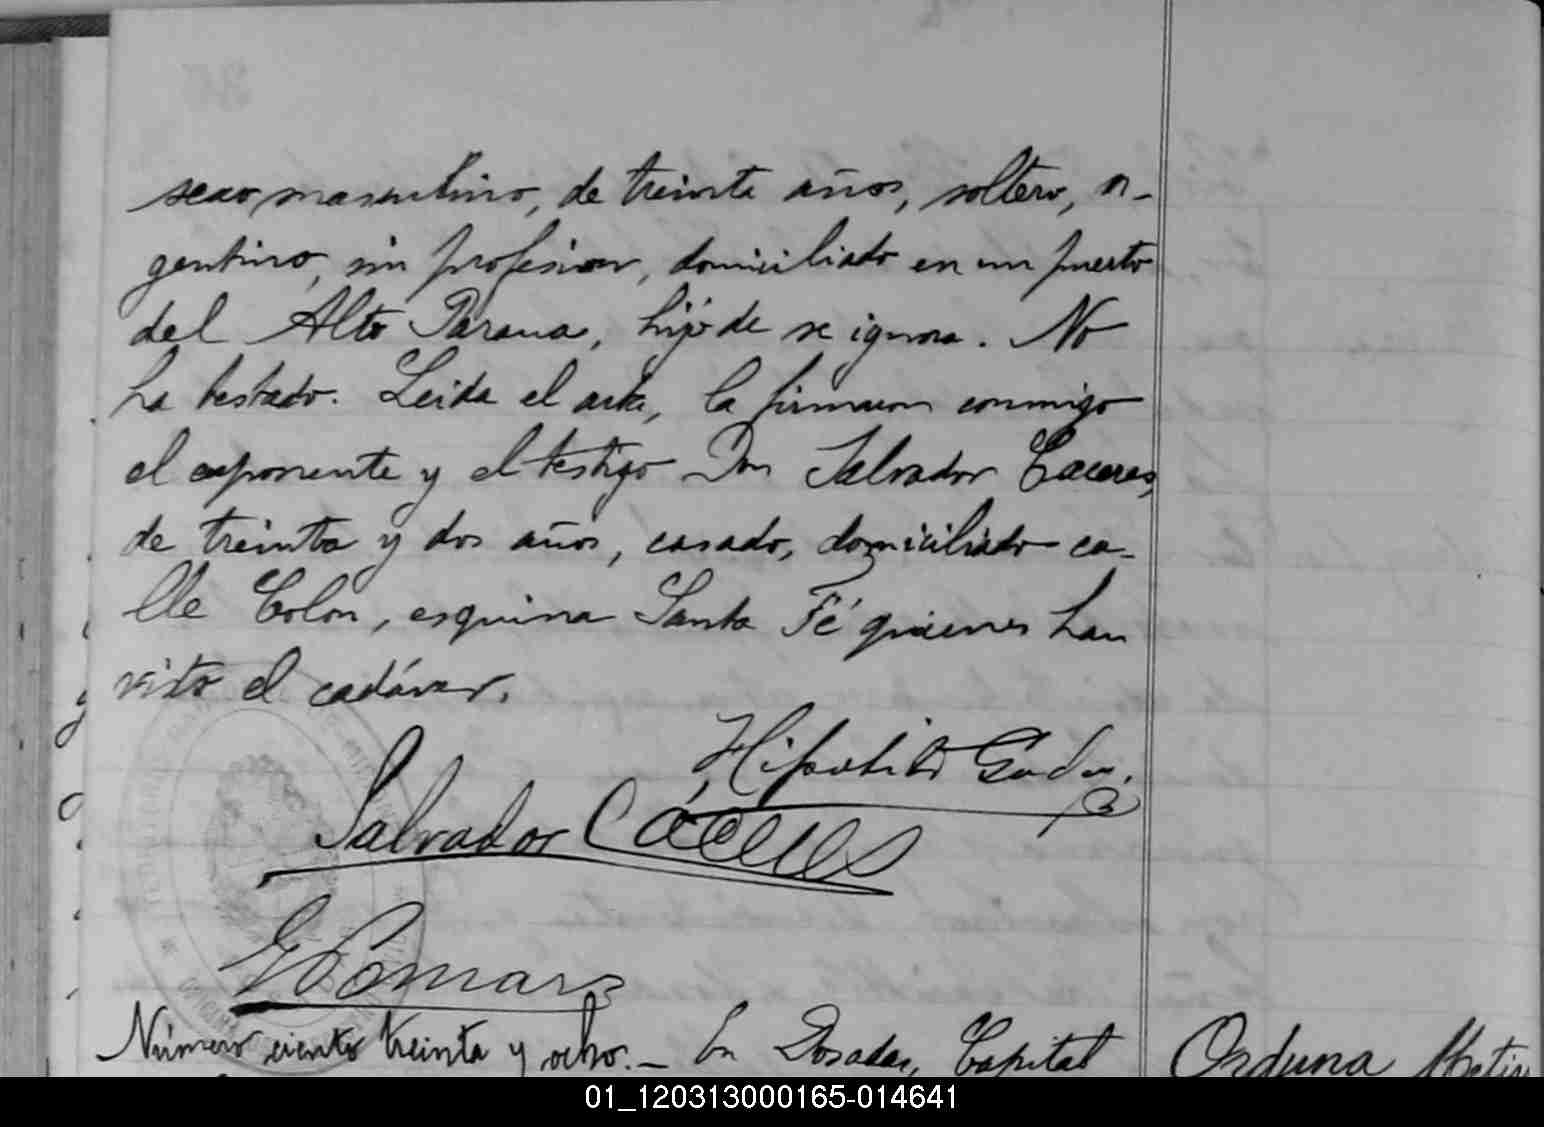 sexo masculino, de treinta años, soltero, ar-
gentino, sin profesion, domiciliado en un puerto
del Alto Parana, hijo de se ignora. No
ha testado. Leida el acta, la firmaron conmigo
el exponente y el testigo Don Salvador Caceres,
de treinta y dos años, casado, domiciliado ca-
lle Colon, esquina Santa Fé quienes han
visto el cadáver.
Hipolito
Salvador Cáceres
Número ciento treinta y ocho.- En Posadas, Capital
Orduna
01_120313000165-014641